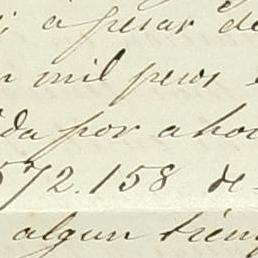 á pesar de
mil pesos
da por ahor
572.158 de
algun tiem